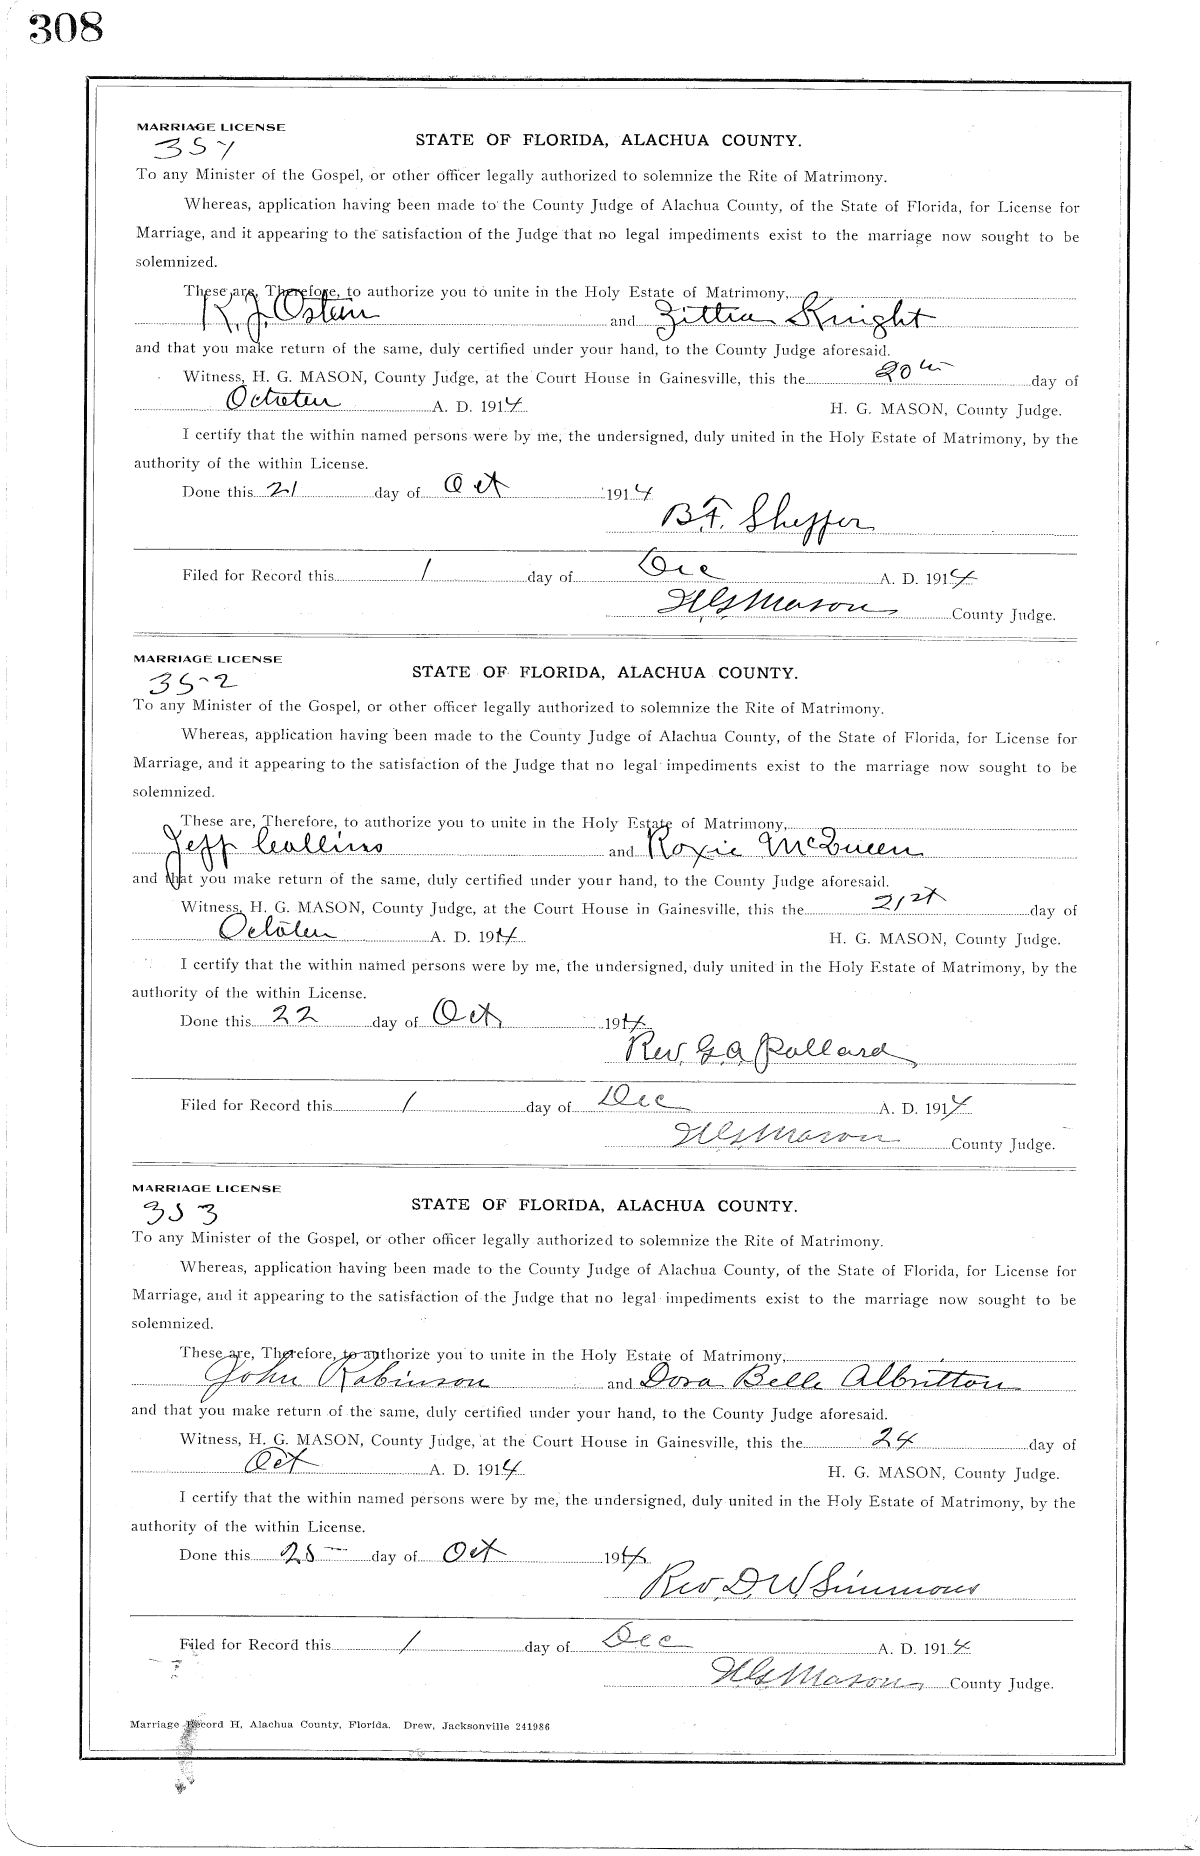 308
MARRIAGE LICENSE
STATE OF FLORIDA, ALACHUA COUNTY.
To any Minister of the Gospel, or other officer legally authorized to solemnize the Rite of Matrimony.
Whereas, application having been made to the County Judge of Alachua County, of the State of Florida, for License for
Marriage, and it appearing to the satisfaction of the Judge that no legal impediments exist to the marriage now sought to be
solemnized.
These are, Therefore, to authorize you to unite in the Holy Estate of Matrimony,
R. J. Osteen and Zittia Knight
and that you make return of the same, duly certified under your hand, to the County Judge aforesaid.
Witness, H. G. MASON, County Judge, at the Court House in Gainesville, this the 20th day of
October A. D. 1914 H. G. MASON, County Judge.
I certify that the within named persons were by me, the undersigned, duly united in the Holy Estate of Matrimony, by the
authority of the within License.
Done this 21 day of Oct 1914
B. F. Sheffer
Filed for Record this 1 day of Dec A. D. 1914
H G Mason County Judge.
MARRIAGE LICENSE
352
STATE OF FLORIDA, ALACHUA COUNTY.
To any Minister of the Gospel, or other officer legally authorized to solemnize the Rite of Matrimony.
Whereas, application having been made to the County Judge of Alachua County, of the State of Florida, for License for
Marriage, and it appearing to the satisfaction of the Judge that no legal impediments exist to the marriage now sought to be
solemnized.
These are, Therefore, to authorize you to unite in the Holy Estate of Matrimony,
Jeff Collins and Roxie McQueen
and that you make return of the same, duly certified under your hand, to the County Judge aforesaid.
Witness, H. G. MASON, County Judge, at the Court House in Gainesville, this the 21st day of
October A. D. 1914 H. G. MASON, County Judge.
I certify that the within named persons were by me, the undersigned, duly united in the Holy Estate of Matrimony, by the
authority of the within License.
Done this 22 day of Oct 1914
Rev. G. A. Pollard
Filed for Record this 1 day of Dec A. D. 1914
H G Mason County Judge.
MARRIAGE LICENSE
353
STATE OF FLORIDA, ALACHUA COUNTY.
To any Minister of the Gospel, or other officer legally authorized to solemnize the Rite of Matrimony.
Whereas, application having been made to the County Judge of Alachua County, of the State of Florida, for License for
Marriage, and it appearing to the satisfaction of the Judge that no legal impediments exist to the marriage now sought to be
solemnized.
These are, Therefore, to authorize you to unite in the Holy Estate of Matrimony,
John Robinson and Dora Belle Albritton
and that you make return of the same, duly certified under your hand, to the County Judge aforesaid.
Witness, H. G. MASON, County Judge, at the Court House in Gainesville, this the 24 day of
Oct A. D. 1914 H. G. MASON, County Judge.
I certify that the within named persons were by me, the undersigned, duly united in the Holy Estate of Matrimony, by the
authority of the within License.
Done this 25 day of Oct 1914
Rev. D. W. Simmons
Filed for Record this 1 day of Dec A. D. 1914
H G Mason County Judge.
Marriage Record H, Alachua County, Florida. Drew, Jacksonville 241986